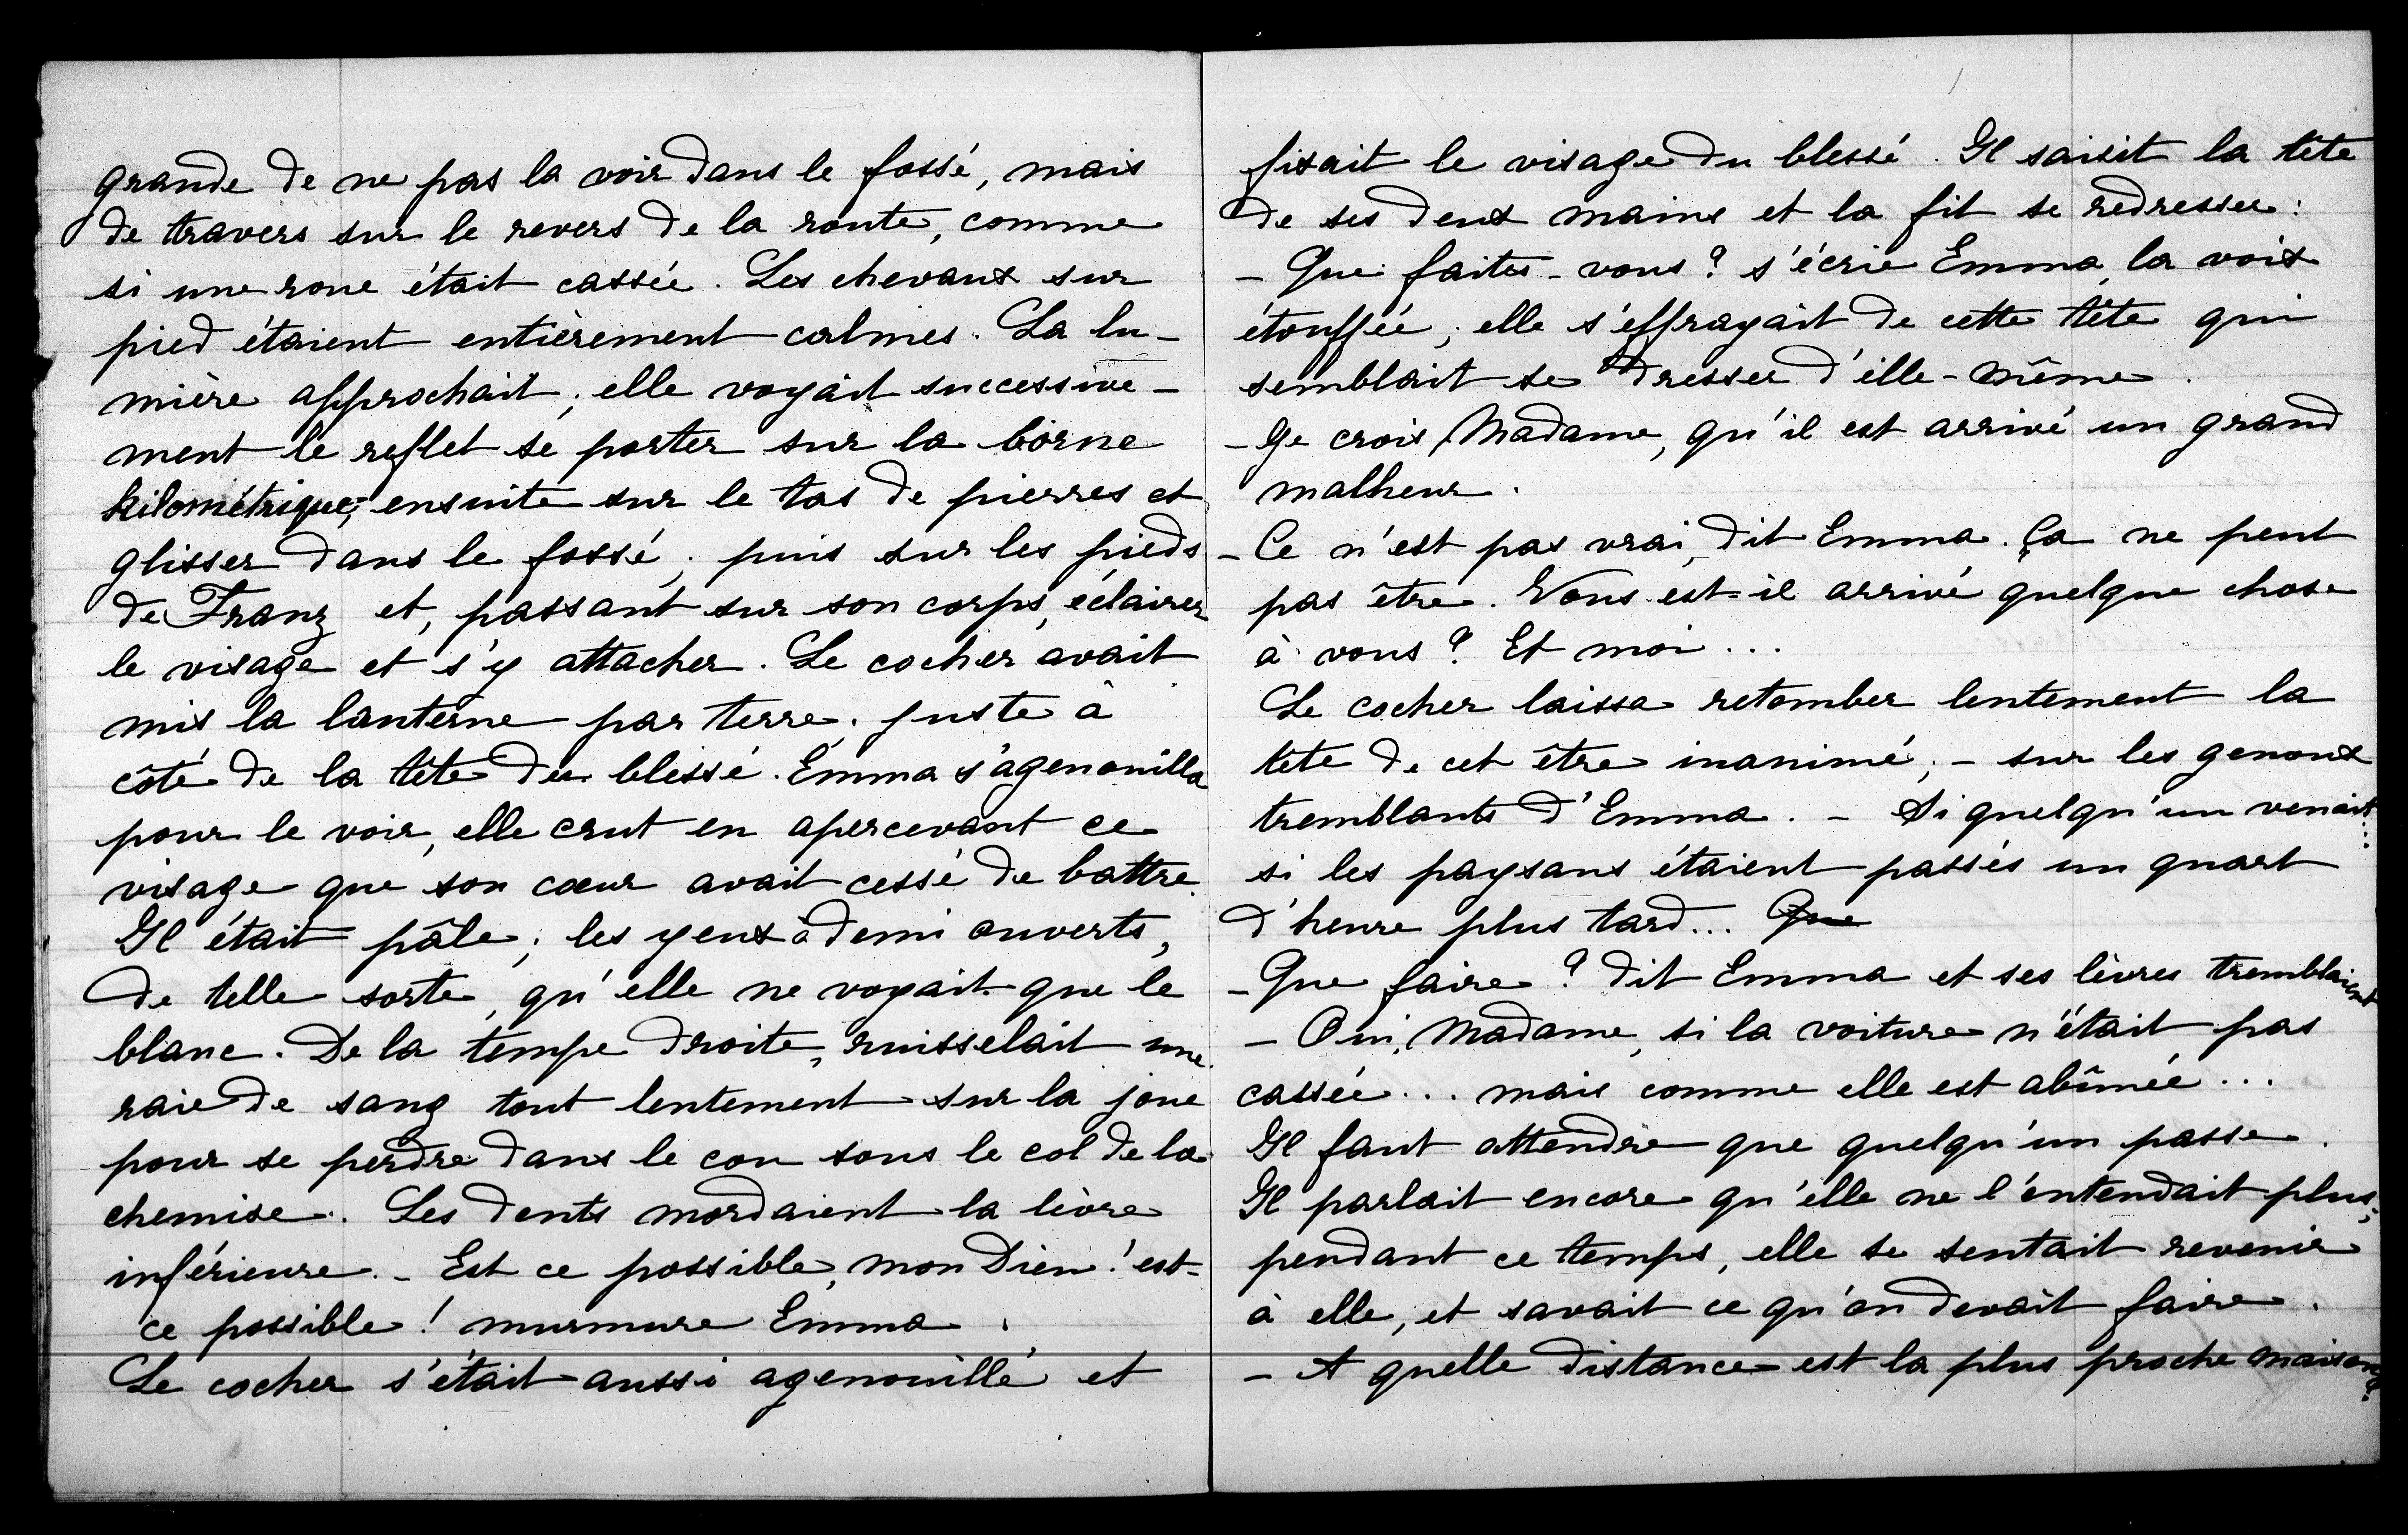 grande de ne pas la voir dans le fossé, mais
de travers sur le revers de la route, comme
si une roue était cassée. Les chevaux sur
pied étaient entièrement calmes. La lu-
mière approchait; elle voyait successive-
ment le reflet se porter sur la borne
kilométrique, ensuite sur le tas de pierres et
glisser dans le fossé; puis sur les pieds
de Franz et, passant sur son corps, éclairer
le visage et s'y attacher. Le cocher avait
mis la lanterne par terre, juste à
côté de la tête du blessé. Emma s'agenouilla
pour le voir, elle crut en apercevant ce
visage que son cœur avait cessé de battre.
Il était pâle; les yeux à demi ouverts,
de telle sorte, qu'elle ne voyait que le
blanc. De la tempe droite, ruisselait une
raie de sang tout lentement sur la joue
pour se perdre dans le cou sous le col de la
chemise. Les dents mordaient la lèvre
inférieure. - Est ce possible, mon Dieu! est-
ce possible! murmure Emma.
Le cocher s'était aussi agenouillé et
fixait le visage du blessé. Il saisit la tête
de ses deux mains et la fit se redresser:
- Que faites-vous? s'écrie Emma, la voix
étouffée; elle s'effrayait de cette tête qui
semblait se dresser d'elle-même.
- Je crois, Madame, qu'il est arrivé un grand
malheur.
- Ce n'est pas vrai, dit Emma. Ça ne peut
pas être. Vous est-il arrivé quelque chose
à vous? Et moi...
Le cocher laissa retomber lentement la
tête de cet être inanimé; - sur les genoux
tremblants d'Emma. - Si quelqu'un venait...
si les paysans étaient passés un quart
d'heure plus tard... Que
- Que faire? dit Emma et ses lèvres tremblaient
- Oui, Madame, si la voiture n'était pas
cassée... mais comme elle est abîmée...
Il faut attendre que quelqu'un passe.
Il parlait encore qu'elle ne l'entendait plus;
pendant ce temps, elle se sentait revenir
à elle, et savait ce qu'on devait faire.
- A quelle distance est la plus proche maison?